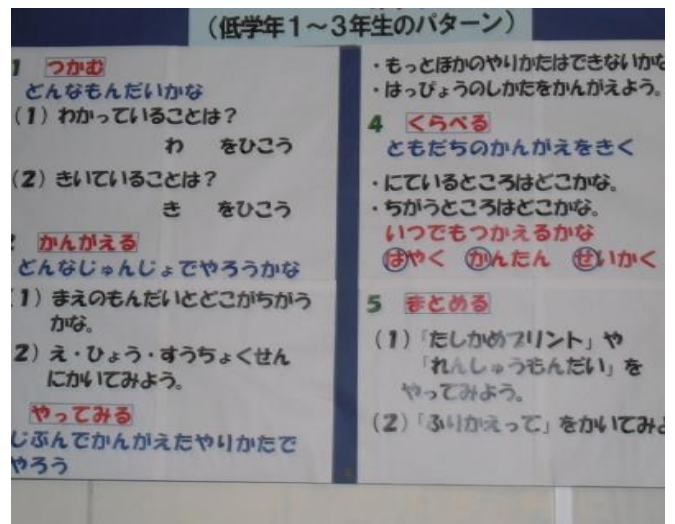 （低学年１～３年生のパターン）
1 つかむ
どんなもんだいかな
（1）わかっていることは？
わ をひこう
（2）きいていることは？
き をひこう
かんがえる
どんなじゅんじょでやろうかな
1）まえのもんだいとどこがちがう
かな。
2）え・ひょう・すうちょくせん
にかいてみよう。
やってみる
じぶんでかんがえたやりかたで
やろう
・もっとほかのやりかたはできないかな
・はっぴょうのしかたをかんがえよう。
4 くらべる
ともだちのかんがえをきく
・にているところはどこかな。
・ちがうところはどこかな。
いつでもつかえるかな
はやく かんたん せいかく
5 まとめる
（1）「たしかめプリント」や
「れんしゅうもんだい」を
やってみよう。
（2）「ふりかえって」をかいてみよ